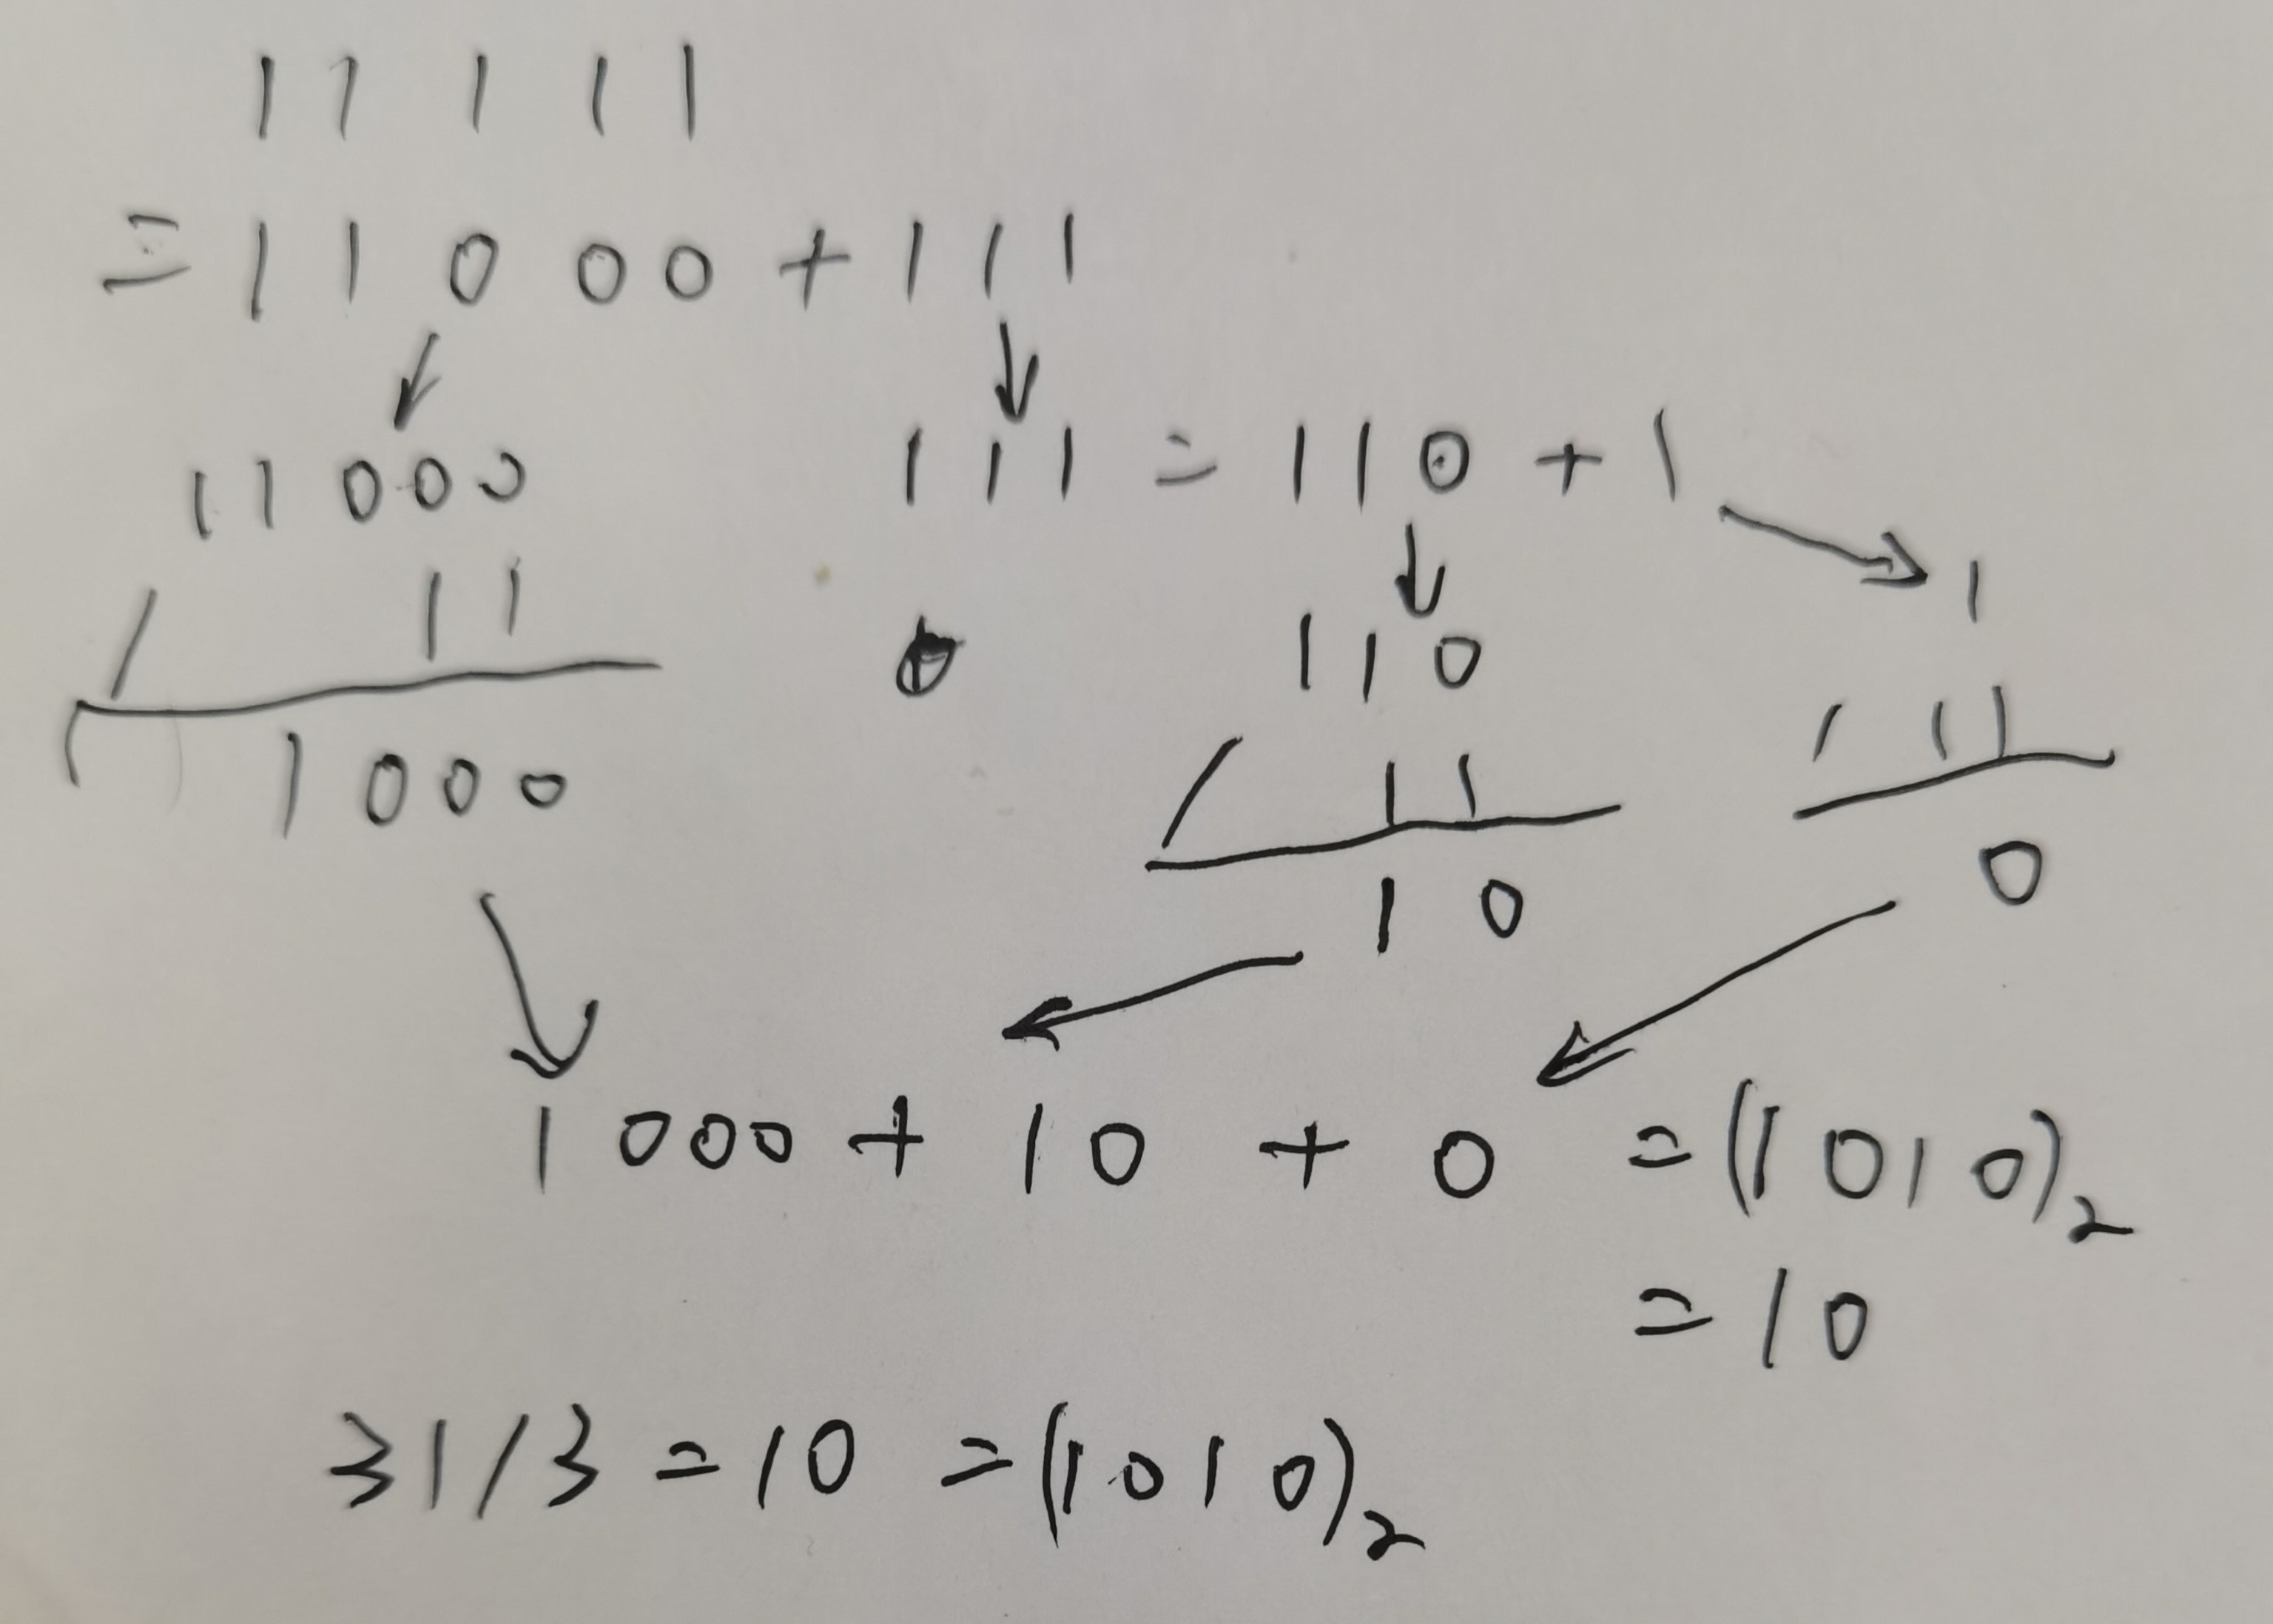 11111
=11000+111
11000
111=110+1
/ 11
1000
110
/ 11
10
1
/ 11
0
1000+10+0=(1010)₂
=10
31/3=10=(1010)₂